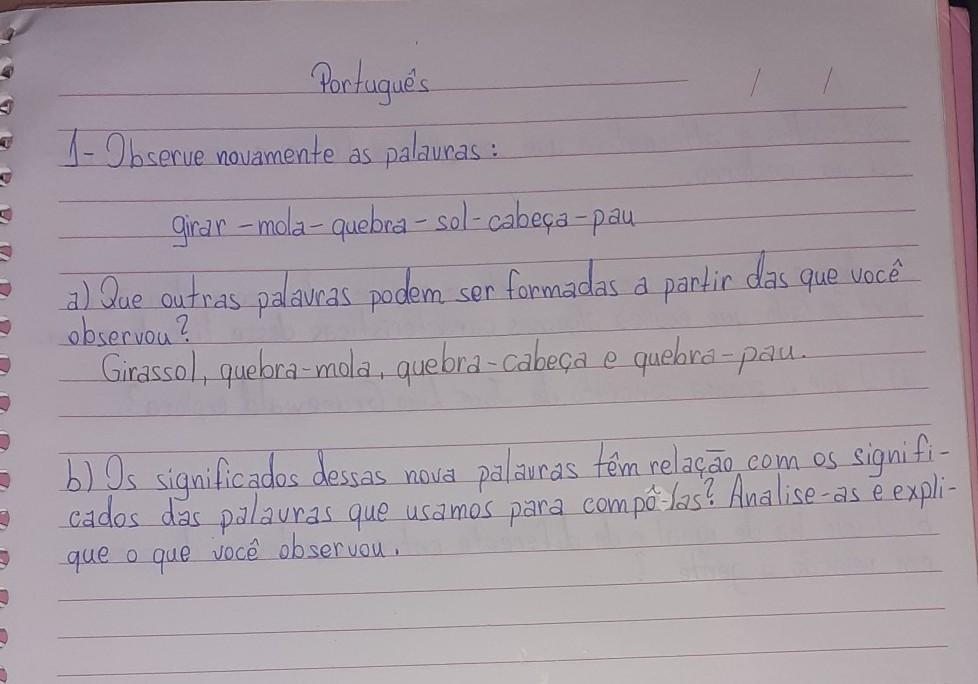 Português / /
1- Observe novamente as palavras:
girar - mola - quebra - sol - cabeça - pau
a) Que outras palavras podem ser formadas a partir das que você
observou?
Girassol, quebra-mola, quebra-cabeça e quebra-pau.
b) Os significados dessas nova palavras têm relação com os signifi-
cados das palavras que usamos para compô-las? Analise-as e expli-
que o que você observou.